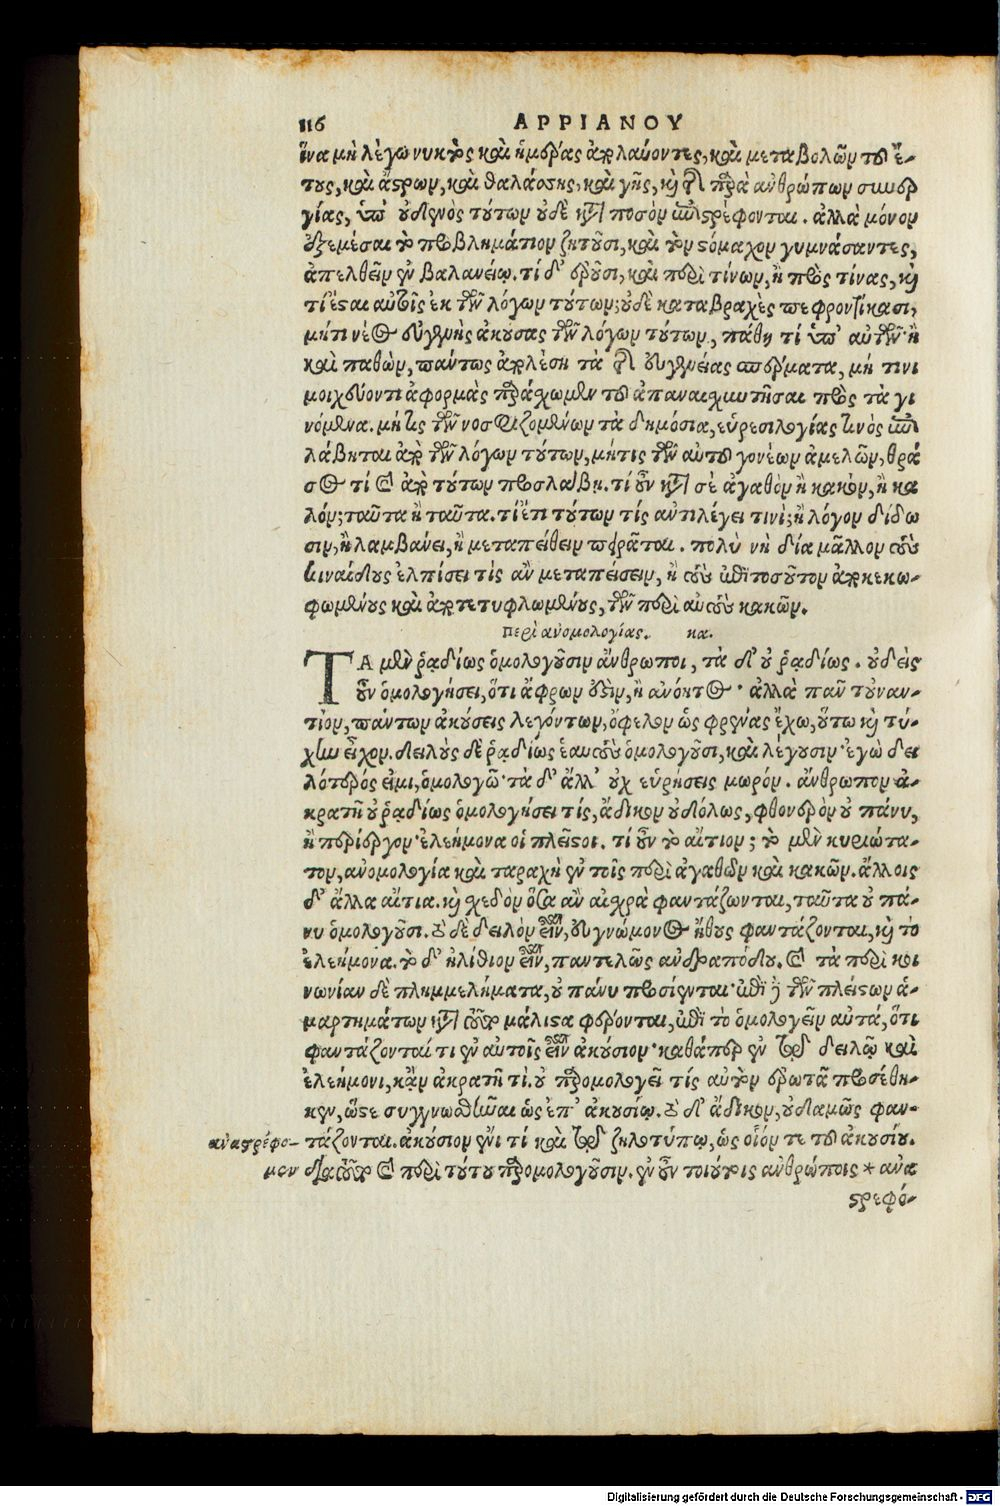 116 ΑΡΡΙΑΝΟΥ
ἵνα μὴ λέγω νυκτὸς καὶ ἡμέρας ἀπολαύοντες, καὶ μεταβολῶν τοῦ ἔ-
τους, καὶ ἄστρων, καὶ θαλάσσης, καὶ γῆς, καὶ τῆς παρὰ ἀνθρώπων συνερ
γίας, ὑπ' οὐδενὸς τούτων οὐδὲ κατὰ ποσὸν ἐπιστρέφονται. ἀλλὰ μόνον
ἐξεμέσαι τὸ προβλημάτιον ζητοῦσι, καὶ τὸν στόμαχον γυμνάσαντες,
ἀπελθεῖν ἐν βαλανείῳ. τί δ' ἐροῦσι, καὶ περὶ τίνων, ἢ πρὸς τίνας, καὶ
τί ἔσται αὐτοῖς ἐκ τῶν λόγων τούτων; οὐδὲ κατὰ βραχὲς πεφροντίκασι,
μήτι νέος εὐγενὴς ἀκούσας τῶν λόγων τούτων, πάθῃ τί ὑπ' αὐτῶν· ἢ
καὶ παθὼν, πάντως ἀπολέσῃ τὰ τῆς εὐγενείας σπέρματα, μή τινι
μοιχεύοντι ἀφορμὰς παράχωμεν τοῦ ἀπαναισχυντῆσαι πρὸς τὰ γι
νόμενα. μή τις τῶν νοσφιζομένων τὰ δημόσια, εὑρεσιλογίας τινὸς ἐπι
λάβηται ἀπὸ τῶν λόγων τούτων, μήτις τῶν αὐτοῦ γονέων ἀμελῶν, θρά
σος τί καὶ ἀπὸ τούτων προσλάβῃ. τί οὖν κατὰ σὲ ἀγαθὸν ἢ κακὸν, ἢ κα
λόν; ταῦτα ἢ ταῦτα. τί ἔτι τούτων τίς ἀντιλέγει τινί; ἢ λόγον δίδω
σιν, ἢ λαμβάνει, ἢ μεταπείθειν πειρᾶται. πολὺ νὴ δία μᾶλλον τοὺς
κιναίδους ἐλπίσει τὶς ἂν μεταπείσειν, ἢ τοὺς ἐπὶ τοσοῦτον ἀποκεκω-
φωμένους καὶ ἀποτετυφλωμένους, τῶν περὶ αὐτοὺς κακῶν.
περὶ ἀνομολογίας. κα.
ΤΑ μὲν ῥᾳδίως ὁμολογοῦσιν ἄνθρωποι, τὰ δ' οὐ ῥᾳδίως. οὐδεὶς
οὖν ὁμολογήσει, ὅτι ἄφρων ἐστὶν, ἢ ἀνόητος· ἀλλὰ πᾶν τοὐναν-
τίον, πάντων ἀκούσεις λεγόντων, ὄφελον ὡς φρένας ἔχω, οὕτω καὶ τύ-
χην εἶχον. δειλοὺς δὲ ῥᾳδίως ἑαυτοὺς ὁμολογοῦσι, καὶ λέγουσιν· ἐγὼ δει
λότερός εἰμι, ὁμολογῶ· τὰ δ' ἄλλ' οὐχ εὑρήσεις μωρόν. ἄνθρωπον ἀ-
κρατῆ οὐ ῥᾳδίως ὁμολογήσει τίς, ἄδικον οὐδόλως, φθονερὸν οὐ πάνυ,
ἢ περίεργον· ἐλεήμονα οἱ πλεῖστοι. τί οὖν τὸ αἴτιον; τὸ μὲν κυριώτα-
τον, ἀνομολογία καὶ ταραχὴ ἐν τοῖς περὶ ἀγαθῶν καὶ κακῶν. ἄλλοις
δ' ἄλλα αἴτια. καὶ σχεδὸν ὅσα ἂν αἰσχρὰ φαντάζωνται, ταῦτα οὐ πά-
νυ ὁμολογοῦσι. τὸ δὲ δειλὸν εἶναι, εὐγνώμονος ἤθους φαντάζονται, καὶ τὸ
ἐλεήμονα. τὸ δ' ἠλίθιον εἶναι, παντελῶς ἀνδραπόδου. καὶ τὰ περὶ κοι
νωνίαν δὲ πλημμελήματα, οὐ πάνυ προσίενται· ἐπὶ δὲ τῶν πλείστων ἁ-
μαρτημάτων κατὰ τοῦτο μάλιστα φέρονται, ἐπὶ τὸ ὁμολογεῖν αὐτά, ὅτι
φαντάζονταί τι ἐν αὐτοῖς εἶναι ἀκούσιον· καθάπερ ἐν τῷ δειλῷ καὶ
ἐλεήμονι, κἂν ἀκρατῆ τὶ. οὐ παρομολογεῖ τίς αὐτὸν ἐρωτᾶ προσέθη-
κεν, ὥστε συγγνωσθῆναι ὡς ἐπ' ἀκουσίῳ. τὸ δ' ἄδικον, οὐδαμῶς φαν-
τάζονται. ἀκούσιον ἔνι τί καὶ τῷ ζηλοτύπῳ, ὡς οἷόν τε τοῦ ἀκουσίου.
διὰ τοῦτο καὶ περὶ τούτου παρομολογοῦσιν. ἐν οὖν τοιούτοις ἀνθρώποις * ἀνα
ἀναστρέφο-
μεν
στρεφό-
Digitalisierung gefördert durch die Deutsche Forschungsgemeinschaft - DFG